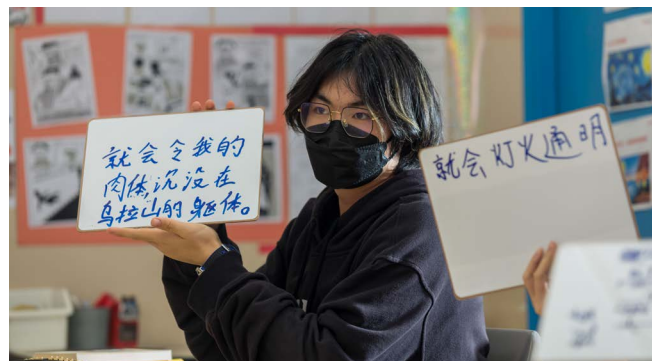 就会令我的
肉体,沉没在
乌拉山的躯体。
就会灯火通明